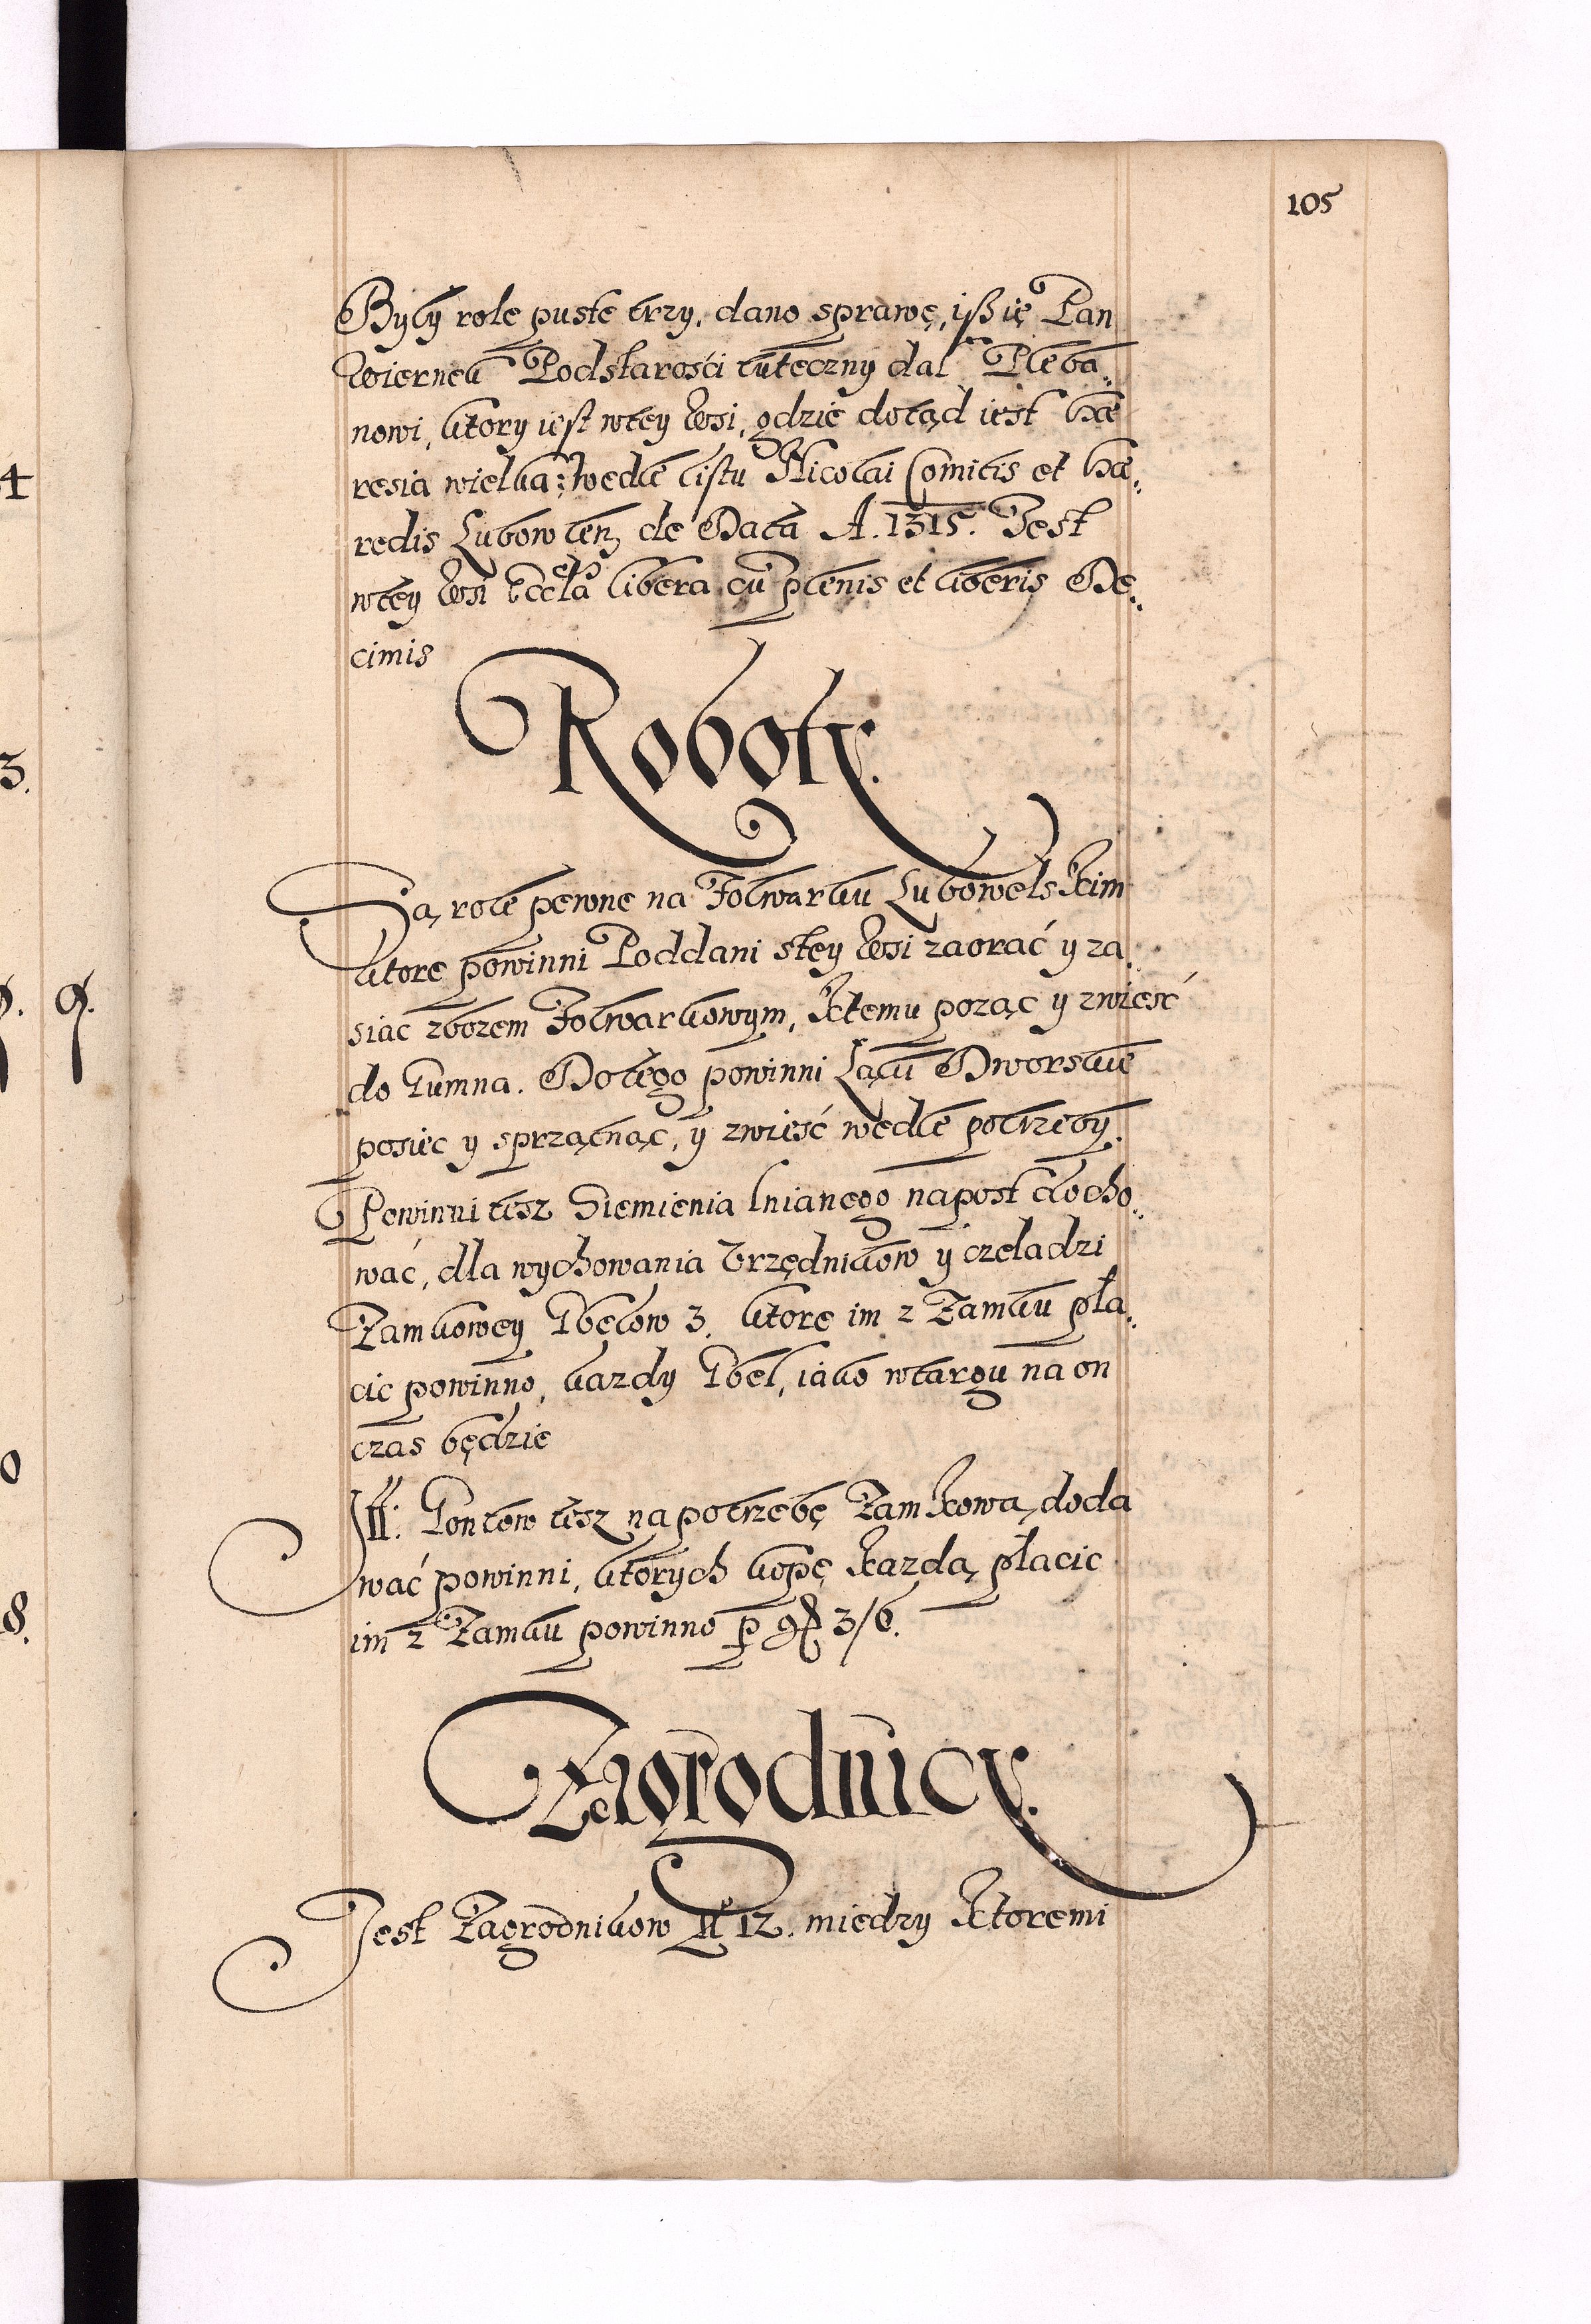 105
4
3.
9.
0
8.
Były role puste trzy, dano sprawę, iß ię Pan
Wiernek Podstarości tuteczny dał Pleba„
nowi, ktory iest wtey Wsi, gdzie dotąd iest hæ
resia wielka: Wedle listu Nicolai Comitis et hæ„
redis Lubowlen̄ de Data A. 1315. Jest
wtey Wsi Eccl̄a libera cū plenis et liberis De„
cimis
Roboty.
Są role pewne na Folwarku Lubowelskim
ktore powinni Poddani stey Wsi zaorać y za„
siac zbozem Folwarkowym, Ktemu poząc y zwiesć
do Gumna. Do tego powinni Łąki Dworskie
posiec y sprzątnąc, y zwieść wedle potrzeby.
Powinni tesz Siemienia lnianego napost docho„
wać, dla wychowania Vrzędnikow y czeladzi
Zamkowey Gbełow 3. ktore im z Zamku pła„
cic powinno, kazdy Gbeł, iako wtargu na on
czas będzie
It: Gontow tesz na potrzebę Zamkową doda
wać powinni, ktorych kopę Kazdą płacic
im z Zamku powinno p gł 3/6.
Zagrodnicy.
Jest Zagrodnikow N 12. miedzy Ktoremi